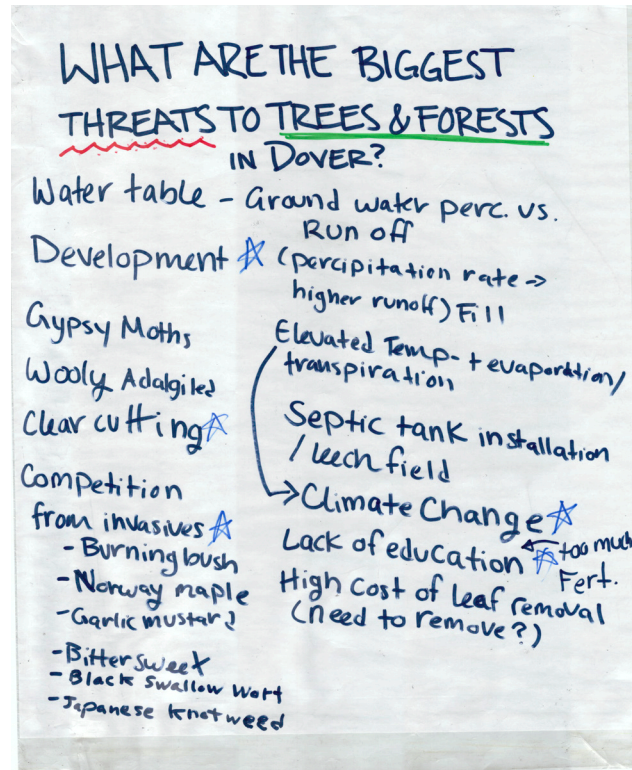 WHAT ARE THE BIGGEST
THREATS TO TREES & FORESTS
IN DOVER?
Water table - Ground water perc. vs.
Run off
Development ☆ (percipitation rate →
higher runoff) Fill
Gypsy Moths
Wooly Adalgiled
Clear cutting ☆
Competition
from invasives ☆
- Burning bush
- Norway maple
- Garlic mustard
- Bittersweet
- Black Swallow Wort
- Japanese knotweed
Elevated Temp - + evaporation/
transpiration
Septic tank installation
/ leech field
→ Climate Change ☆
Lack of education ☆ ← too much
Fert.
High Cost of leaf removal
(need to remove?)